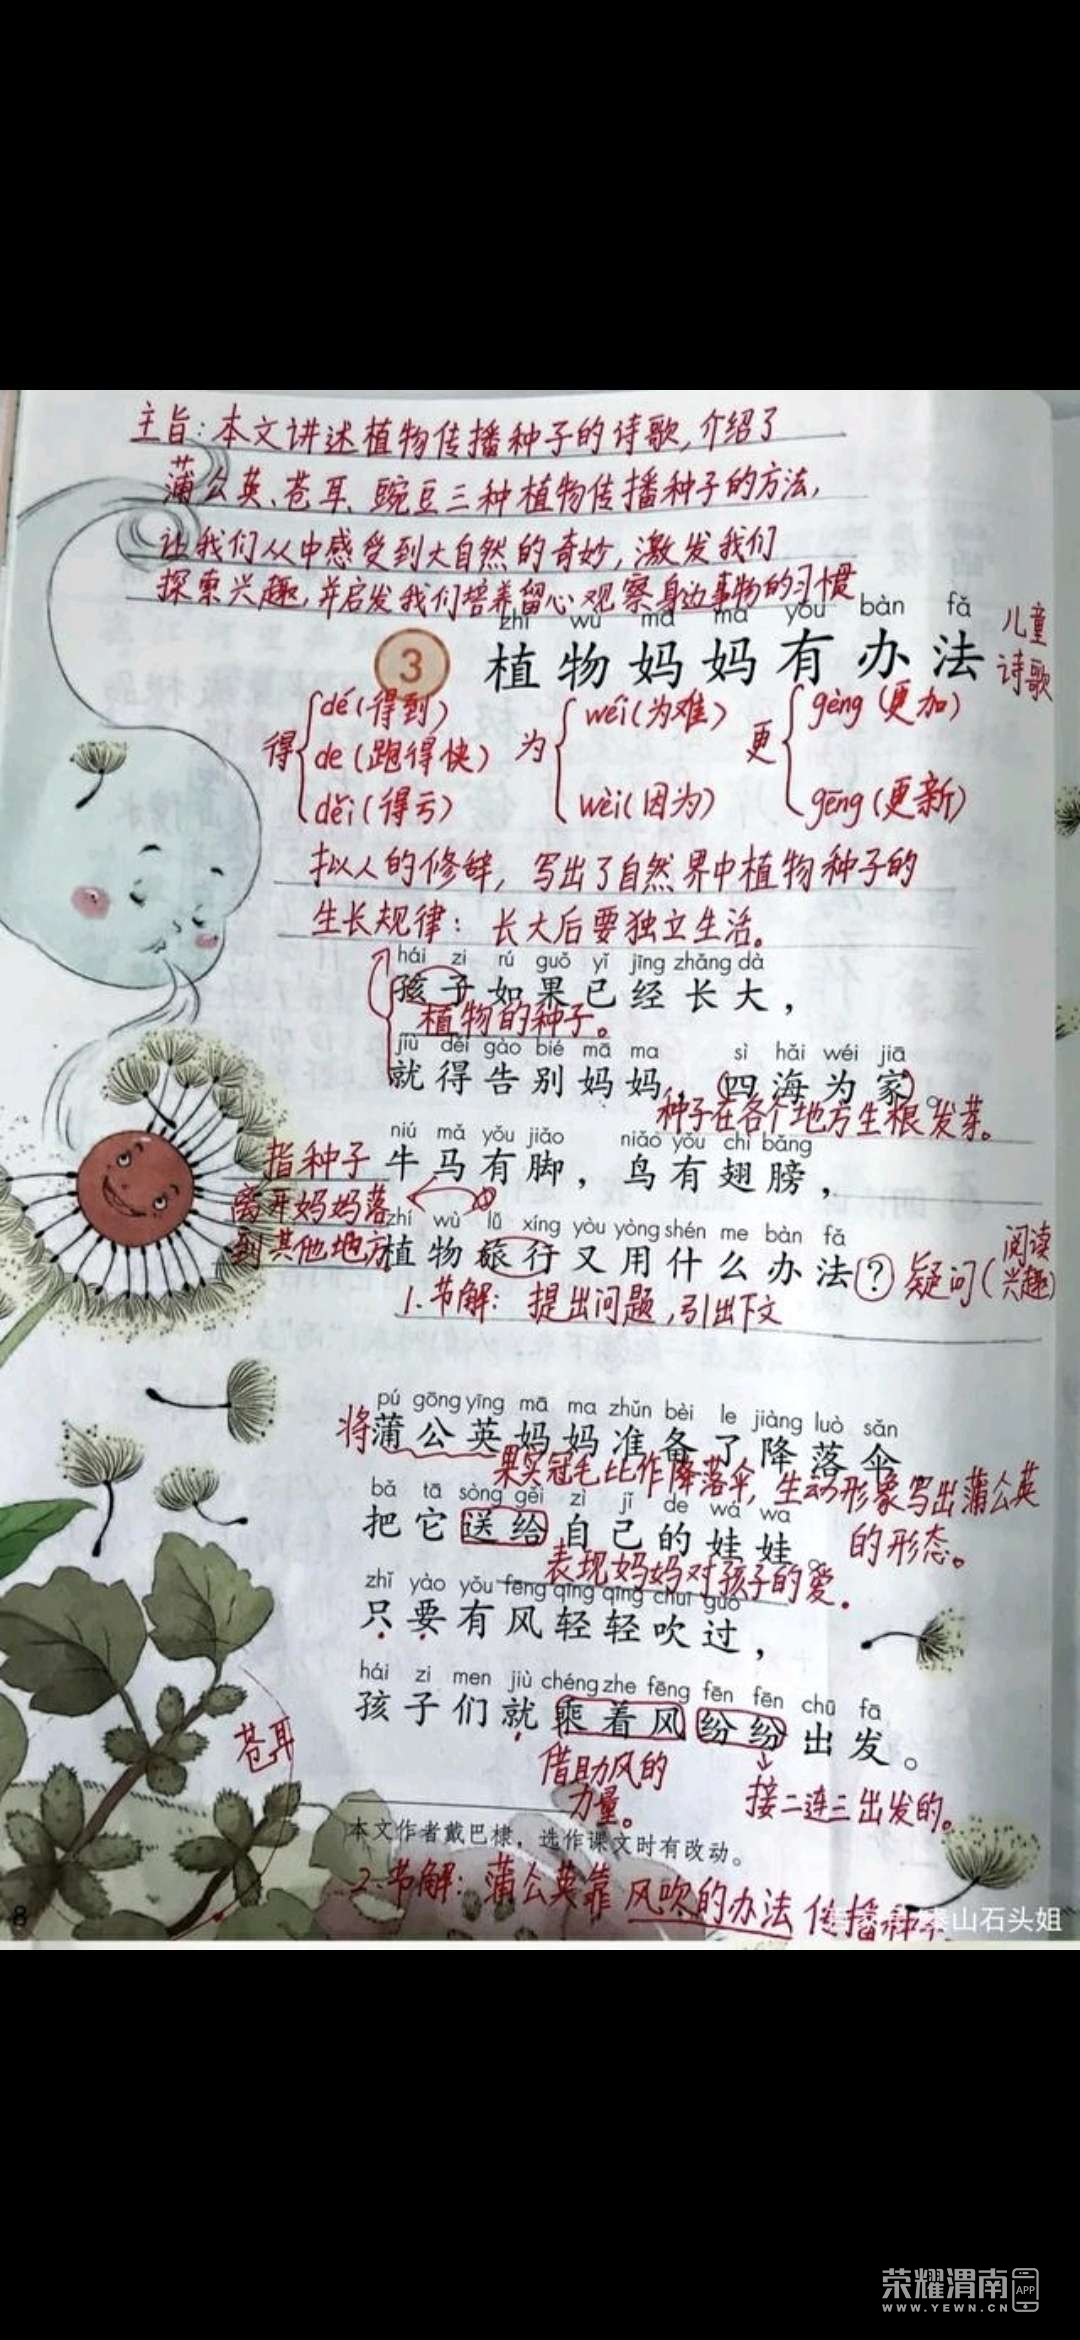 主旨：本文讲述植物传播种子的诗歌，介绍了
蒲公英、苍耳、豌豆三种植物传播种子的方法，
让我们从中感受到大自然的奇妙，激发我们
探索兴趣，并启发我们培养留心观察身边事物的习惯
zhí wù mā ma yǒu bàn fǎ
3 植物妈妈有办法
儿童
诗歌
得 dé（得到） de（跑得快） děi（得亏）
为 wéi（为难） wèi（因为）
更 gèng（更加） gēng（更新）
拟人的修辞，写出了自然界中植物种子的
生长规律：长大后要独立生活。
hái zi rú guǒ yǐ jīng zhǎng dà
孩子如果已经长大，
植物的种子。
jiù děi gào bié mā ma sì hǎi wéi jiā
就得告别妈妈，四海为家。
种子在各个地方生根发芽。
niú mǎ yǒu jiǎo niǎo yǒu chì bǎng
牛马有脚，鸟有翅膀，
指种子
离开妈妈落
到其他地方
zhí wù lǚ xíng yòu yòng shén me bàn fǎ
植物旅行又用什么办法？
疑问（阅读兴趣）
1.节解：提出问题，引出下文
pú gōng yīng mā ma zhǔn bèi le jiàng luò sǎn
将
蒲公英妈妈准备了降落伞，
果实冠毛比作降落伞，生动形象写出蒲公英
的形态。
bǎ tā sòng gěi zì jǐ de wá wa
把它送给自己的娃娃。
表现妈妈对孩子的爱。
zhǐ yào yǒu fēng qīng qīng chuī guò
只要有风轻轻吹过，
hái zi men jiù chéng zhe fēng fēn fēn chū fā
孩子们就乘着风纷纷出发。
苍耳
借助风的
力量。
接二连三出发的。
本文作者戴巴棣，选作课文时有改动。
2.节解：蒲公英靠风吹的办法传播种
8
泰山石头姐
荣耀渭南 APP
WWW.YEWN.CN